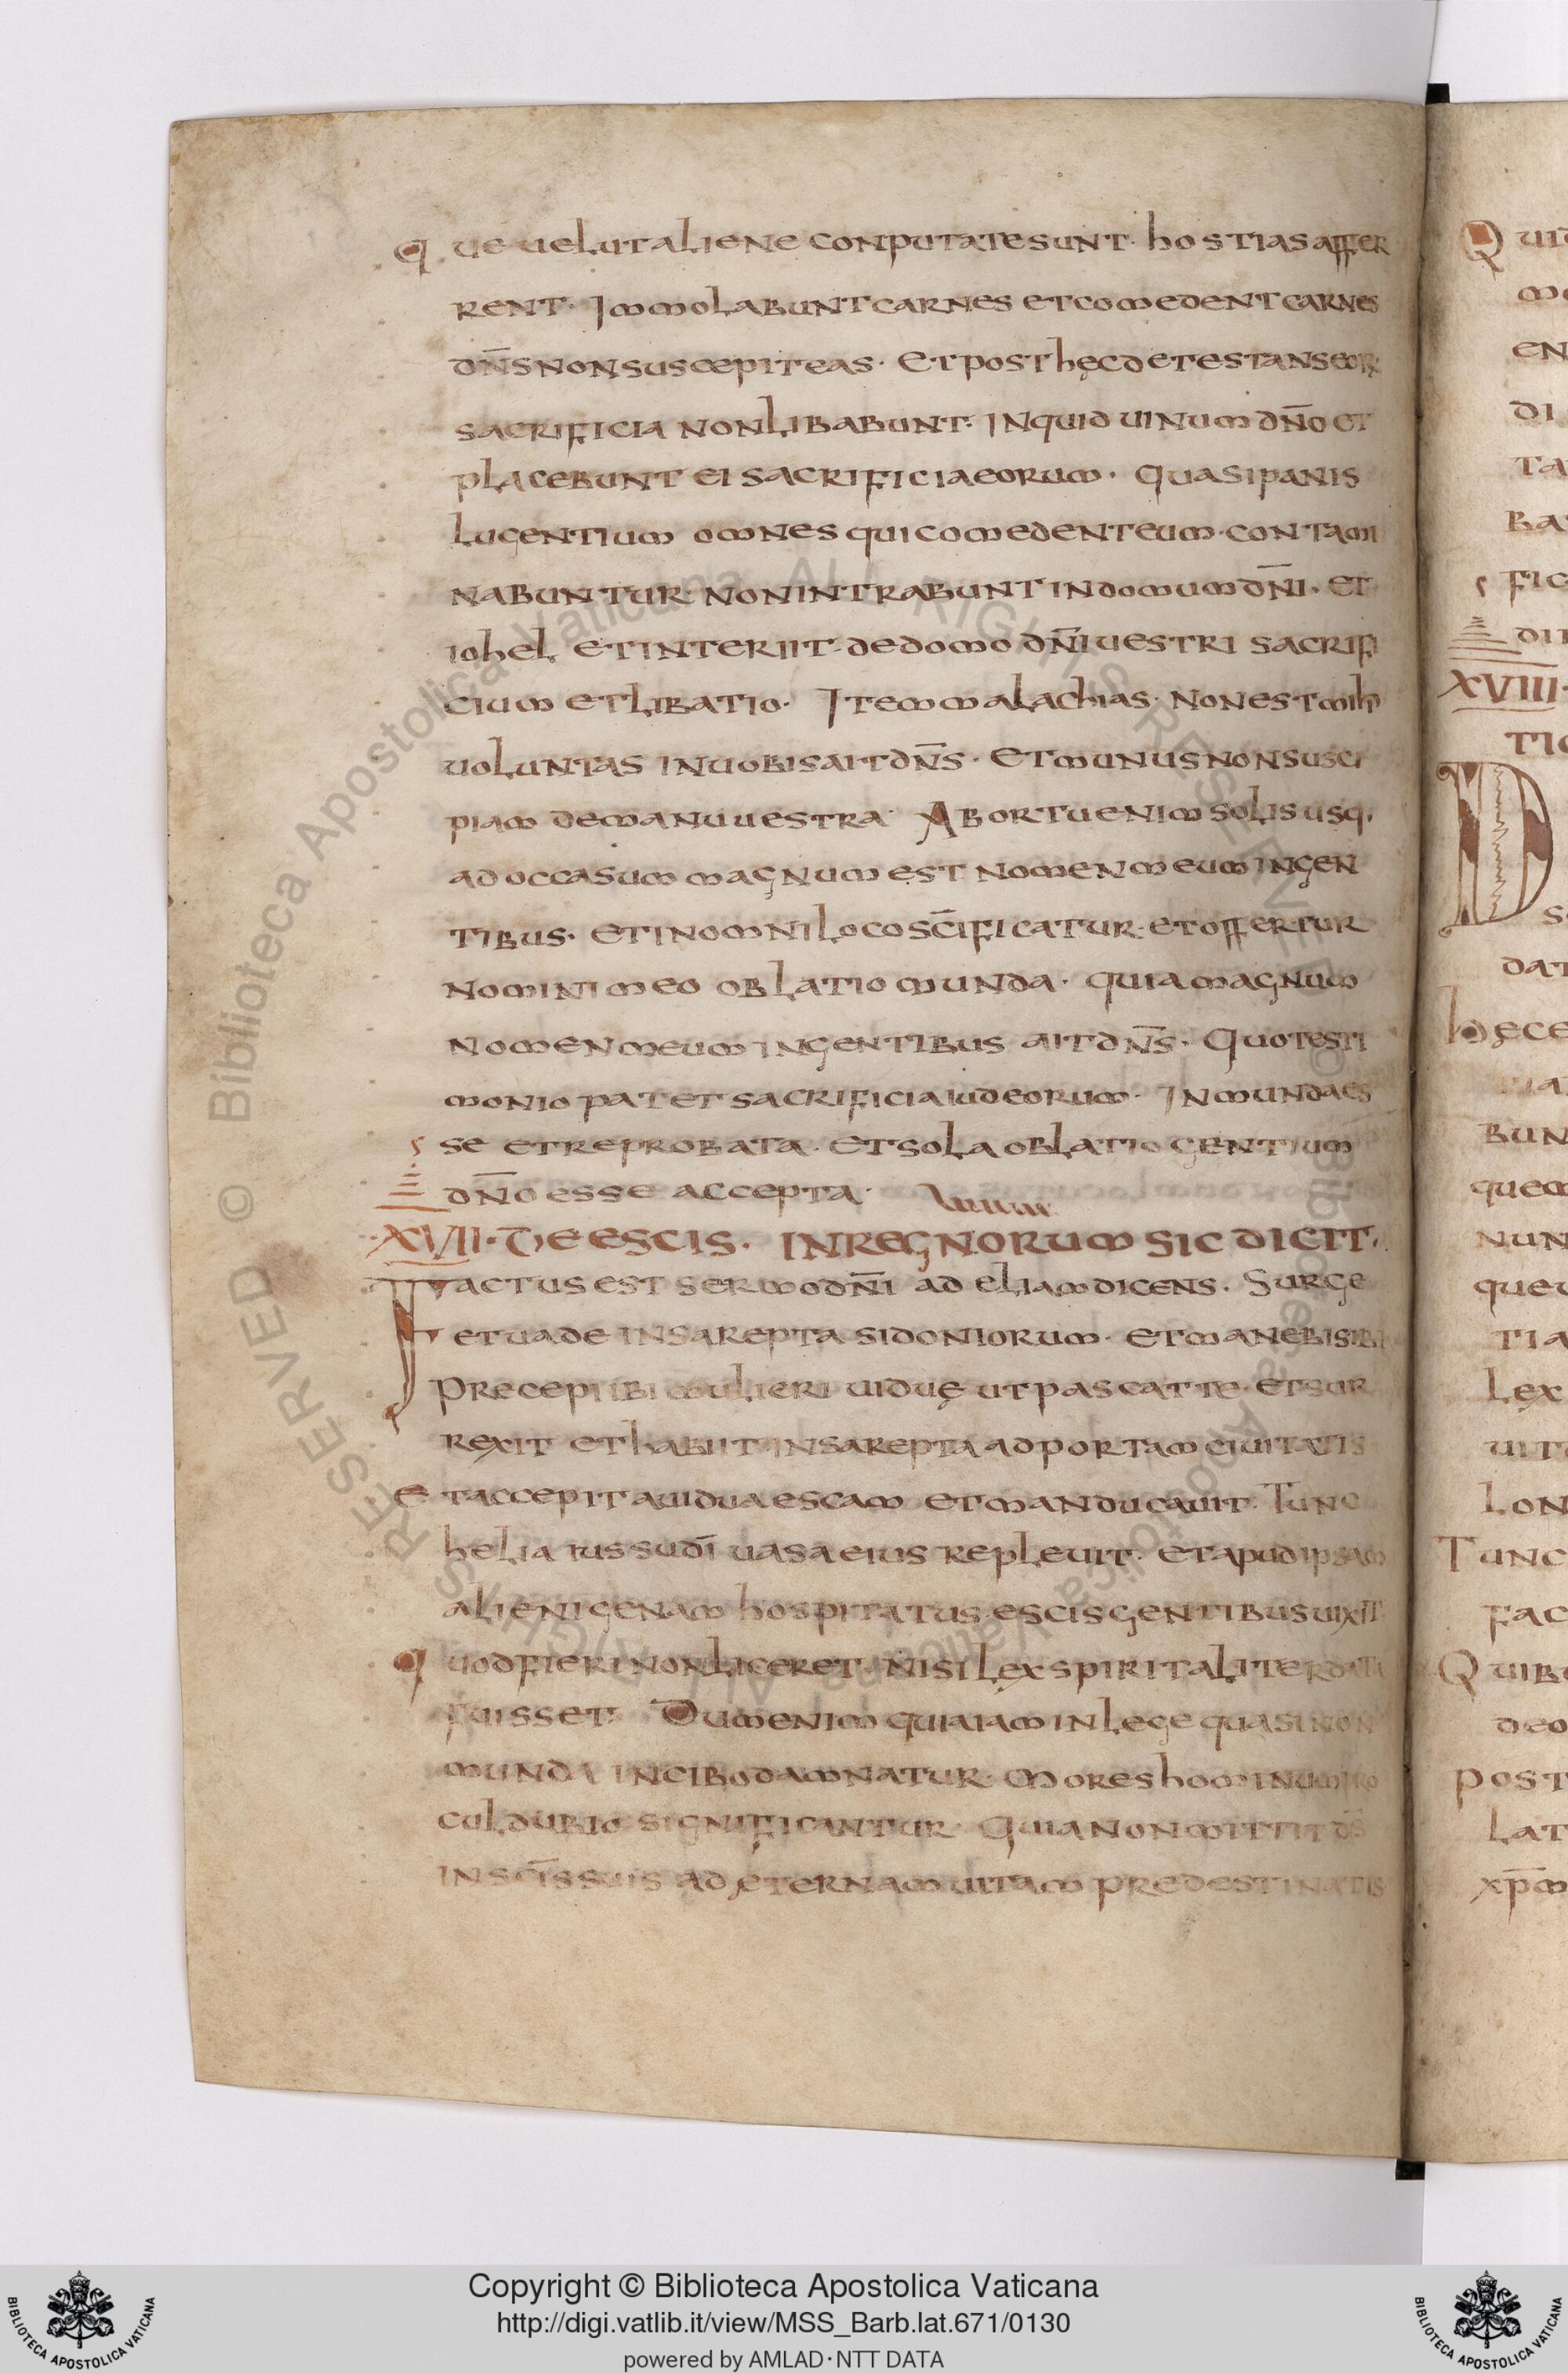 que uelut aliene conputate sunt· hostias affer
rent· Immolabunt carnes et comedent carnes
dn̄s non suscepit eas· Et post hęc detestans eor
sacrificia non libabunt· inquid uinum dn̄o et
placebunt ei sacrificia eorum· quasi panis
lugentium omnes qui comedent eum· contami
nabuntur· non intrabunt in domum dn̄i· et
iohel et interiit· de domo dn̄i uestri sacrifi
cium et libatio· Item malachias· non est mihi
uoluntas in uobis ait dn̄s· Et munus non susci
piam de manu uestra· Ab ortu enim solis usq;
ad occasum magnum est nomen meum in gen
tibus· et in omni loco sc̄ificatur· et offertur
nomini meo oblatio munda· quia magnum
nomen meum in gentibus ait dn̄s· Quo testi
monio patet sacrificia iudeorum· Inmunda es
se et reprobata· et sola oblatio gentium
dn̄o esse accepta·
XVII· De escis· in regnorum sic dicit·
Factus est sermo dn̄i ad eliam dicens· Surge
et uade in sarepta sidoniorum· et manebis ibi
Precepi ibi mulieri uiduę ut pascat te· et sur
rexit et habiit in sarepta ad portam ciuitatis
et accepit a uidua escam et manducauit· Tunc
helia iussu dī uasa eius repleuit· et apud ipsam
alienigenam hospitatus escis gentibus uixit
quod fieri non liceret· nisi lex spiritaliter
fuisset· Dum enim quia iam in lege quasi non
munda in cibo damnatur· Mores hominum pro
cul dubio significantur· Quia non mittit d̄s
in sc̄is suis ad ęternam uitam predestinatis
Qui
en
di
ta
ba
fic
dit
XVIII·
tio
D
dat
hęc e
bun
quem
nun
que u
tia
lex
uit
lon
Tunc
fac
Quib
deo
post
lat
xp̄m
Copyright © Biblioteca Apostolica Vaticana
http://digi.vatlib.it/view/MSS_Barb.lat.671/0130
powered by AMLAD·NTT DATA